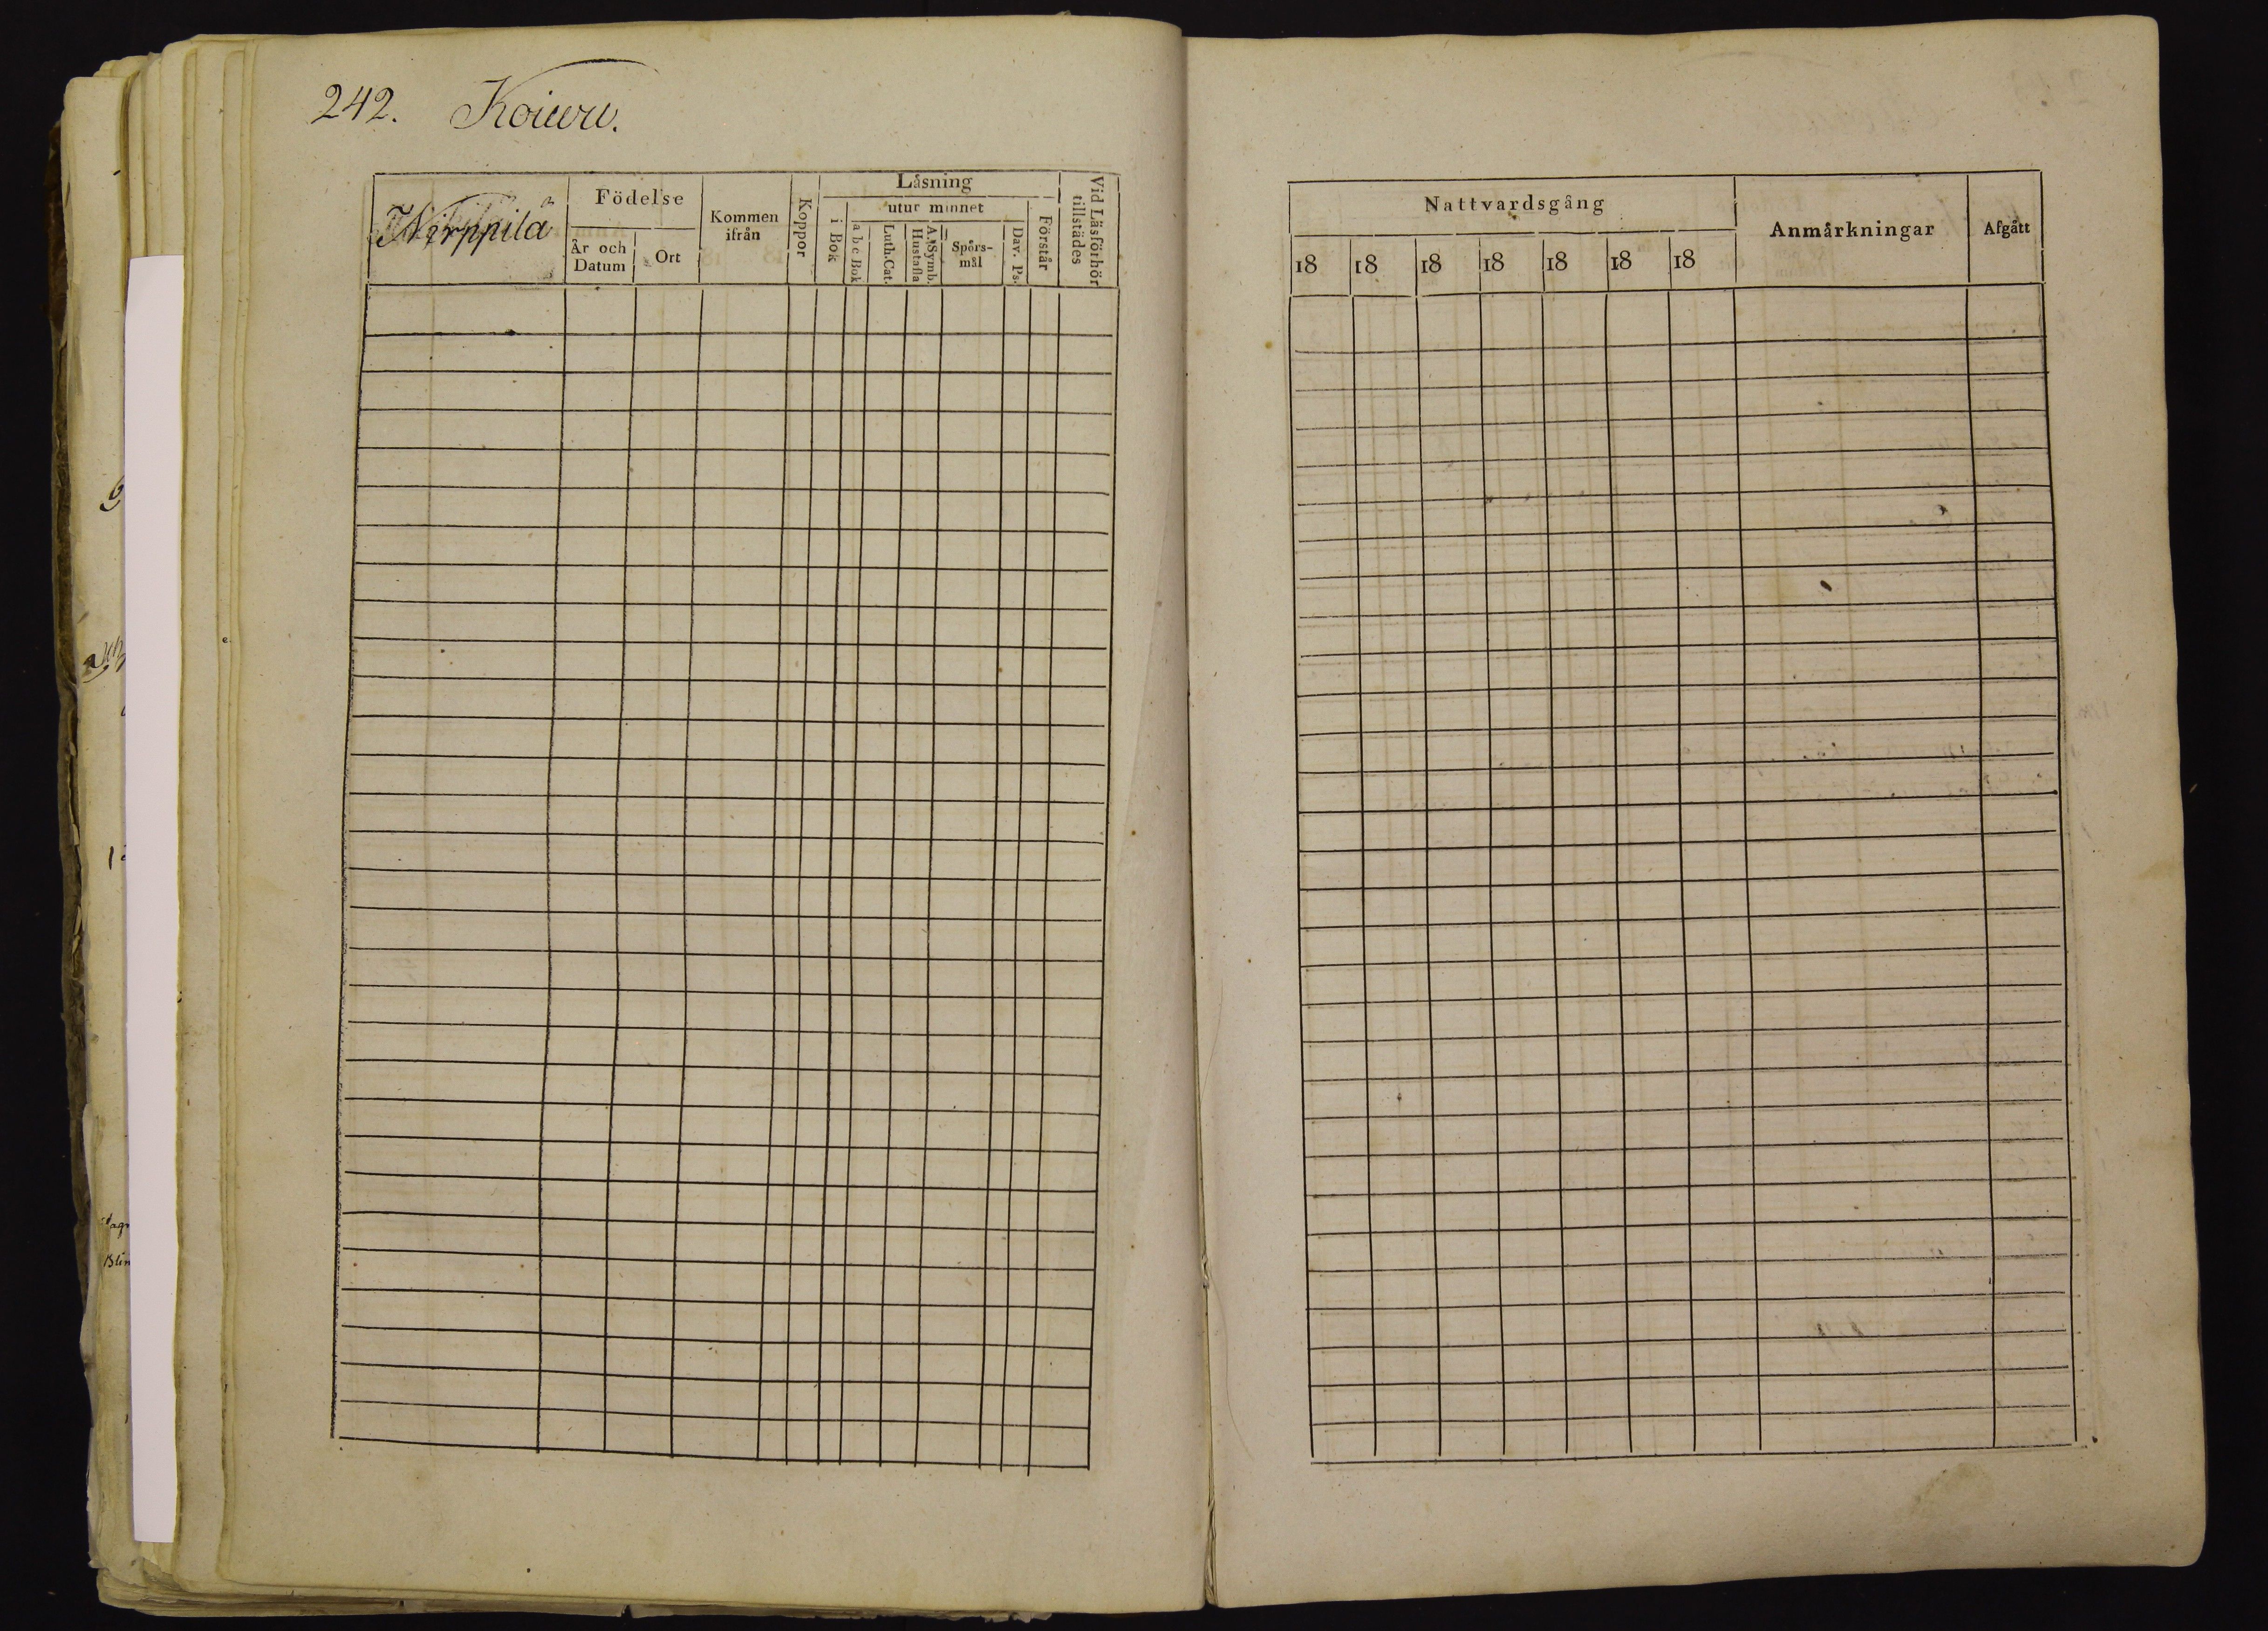 242. Koiwu.
Nirppilä
Födelse
År och Datum
Ort
Kommen ifrån
Koppor
Låsning
i Bok
utur minnet
a b c Bok
Luth. Cat.
A. Symb. Hustafla
Spörs-mål
Dav. Ps.
Förstår
Vid Läsförhör tillstädes
Nattvardsgång
18 18 18 18 18 18 18
Anmårkningar
Afgått